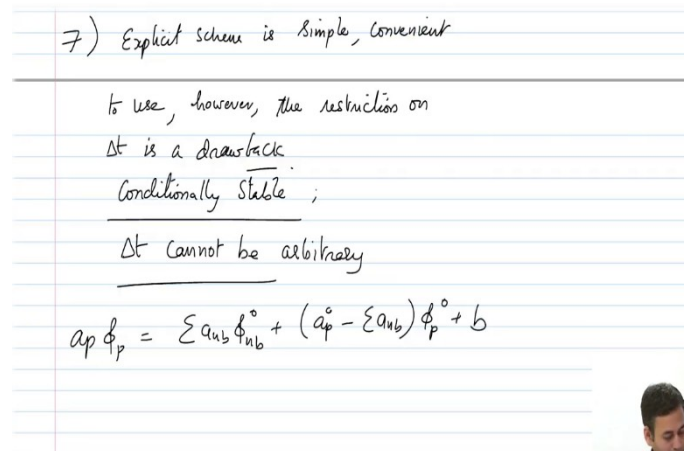 7) Explicit scheme is simple, convenient
to use, however, the restriction on
Δt is a drawback
Conditionally Stable ;
Δt cannot be arbitrary
aₚ ϕₚ = Σ aₙᵦ ϕ°ₙᵦ + (a°ₚ - Σ aₙᵦ) ϕₚ° + b